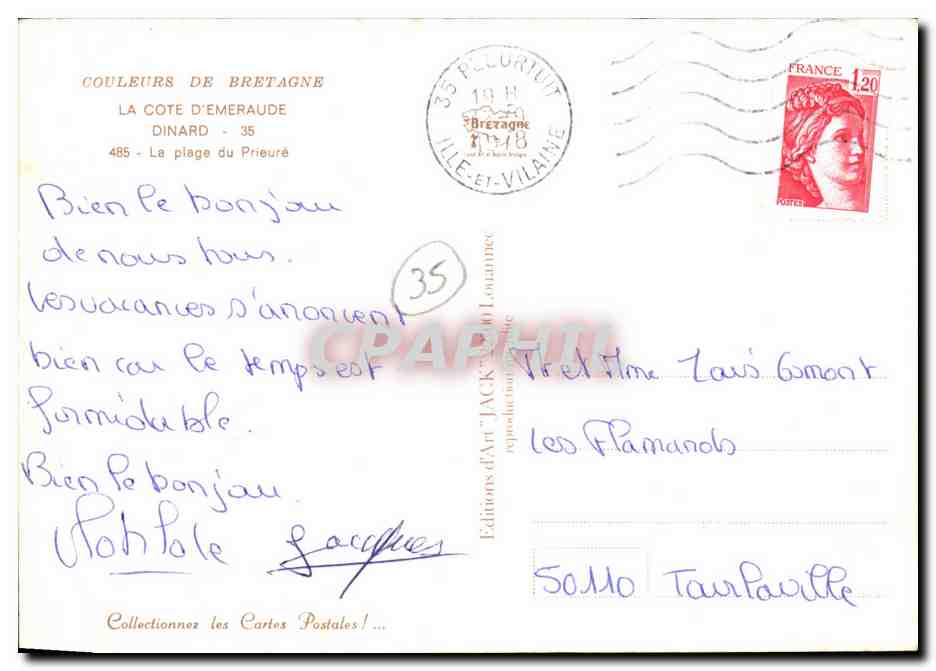 COULEURS DE BRETAGNE
LA COTE D'EMERAUDE
DINARD - 35
485 - La plage du Prieuré
35 PLEURTUIT
19 H
Bretagne
ILLE-ET-VILAINE
FRANCE 1,20
POSTES
Bien le bonjour
de nous tous.
Les vacances s'anoncent
bien car le temps est
formidable.
Bien le bonjour.
Clotilde Jacques
35
CPAPHIL
Editions d'Art "JACK" Louannec
reproduction
Mr et Mme Louis Osmont
Les Flamands
50110 Tourlaville
Collectionnez les Cartes Postales ! ...